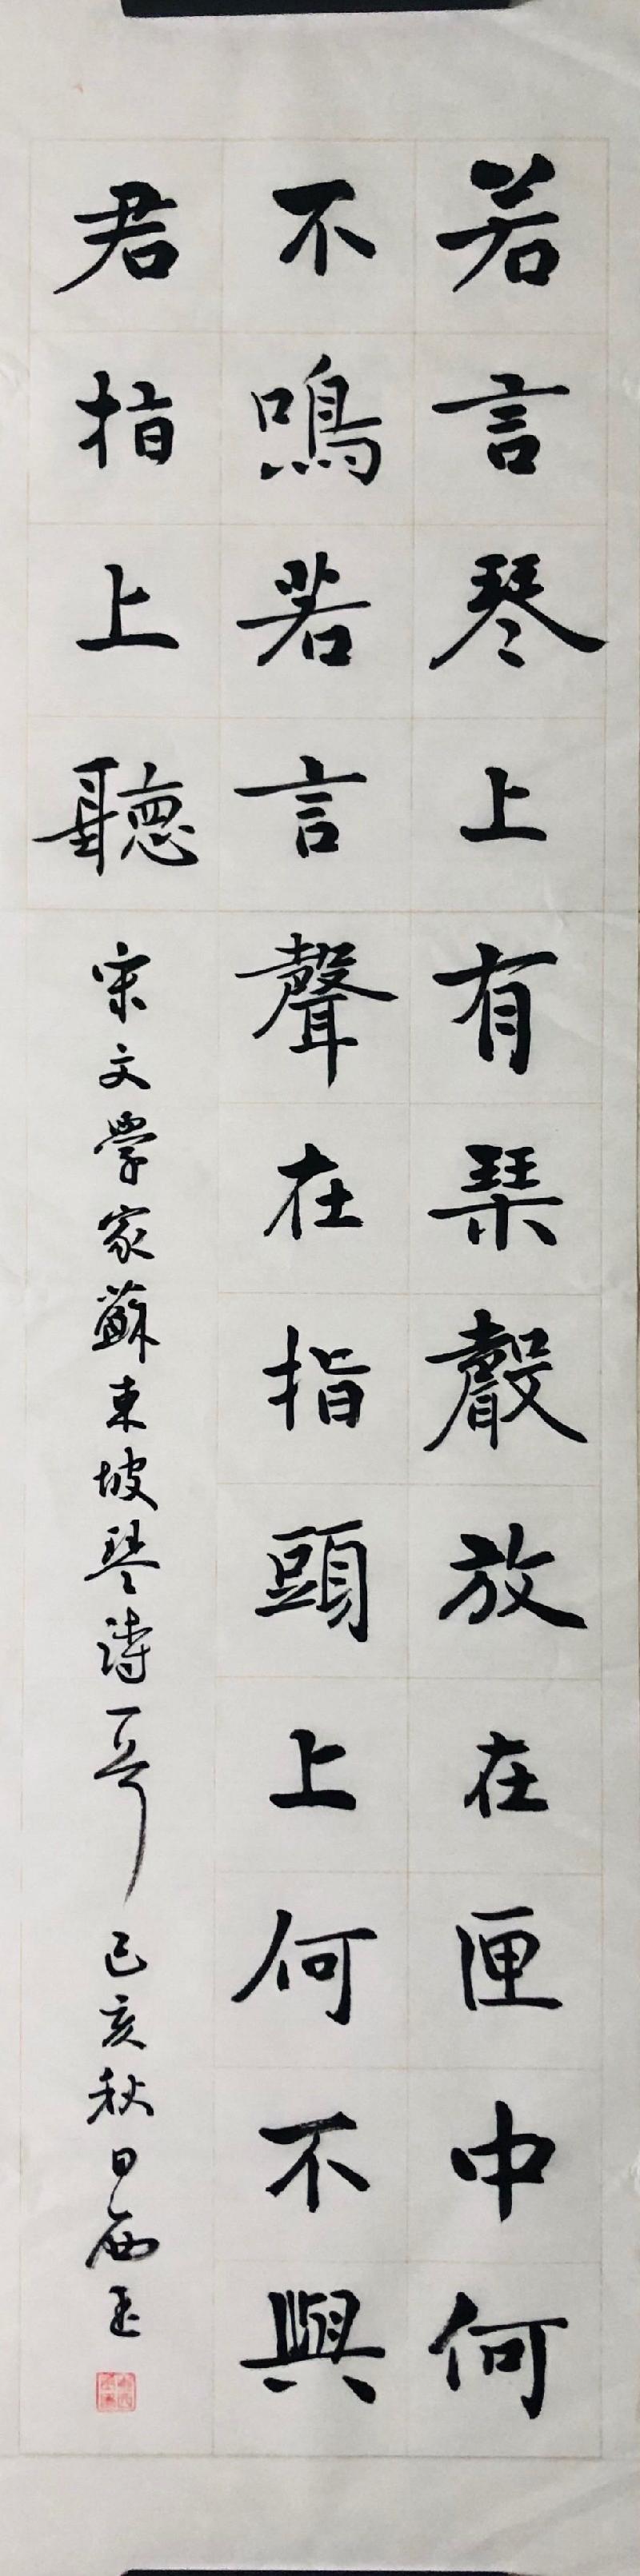 若言琴上有琹聲放在匣中何
不鳴若言聲在指頭上何不與
君指上聽
宋文學家蘇東坡琴詩一首己亥秋日西玉